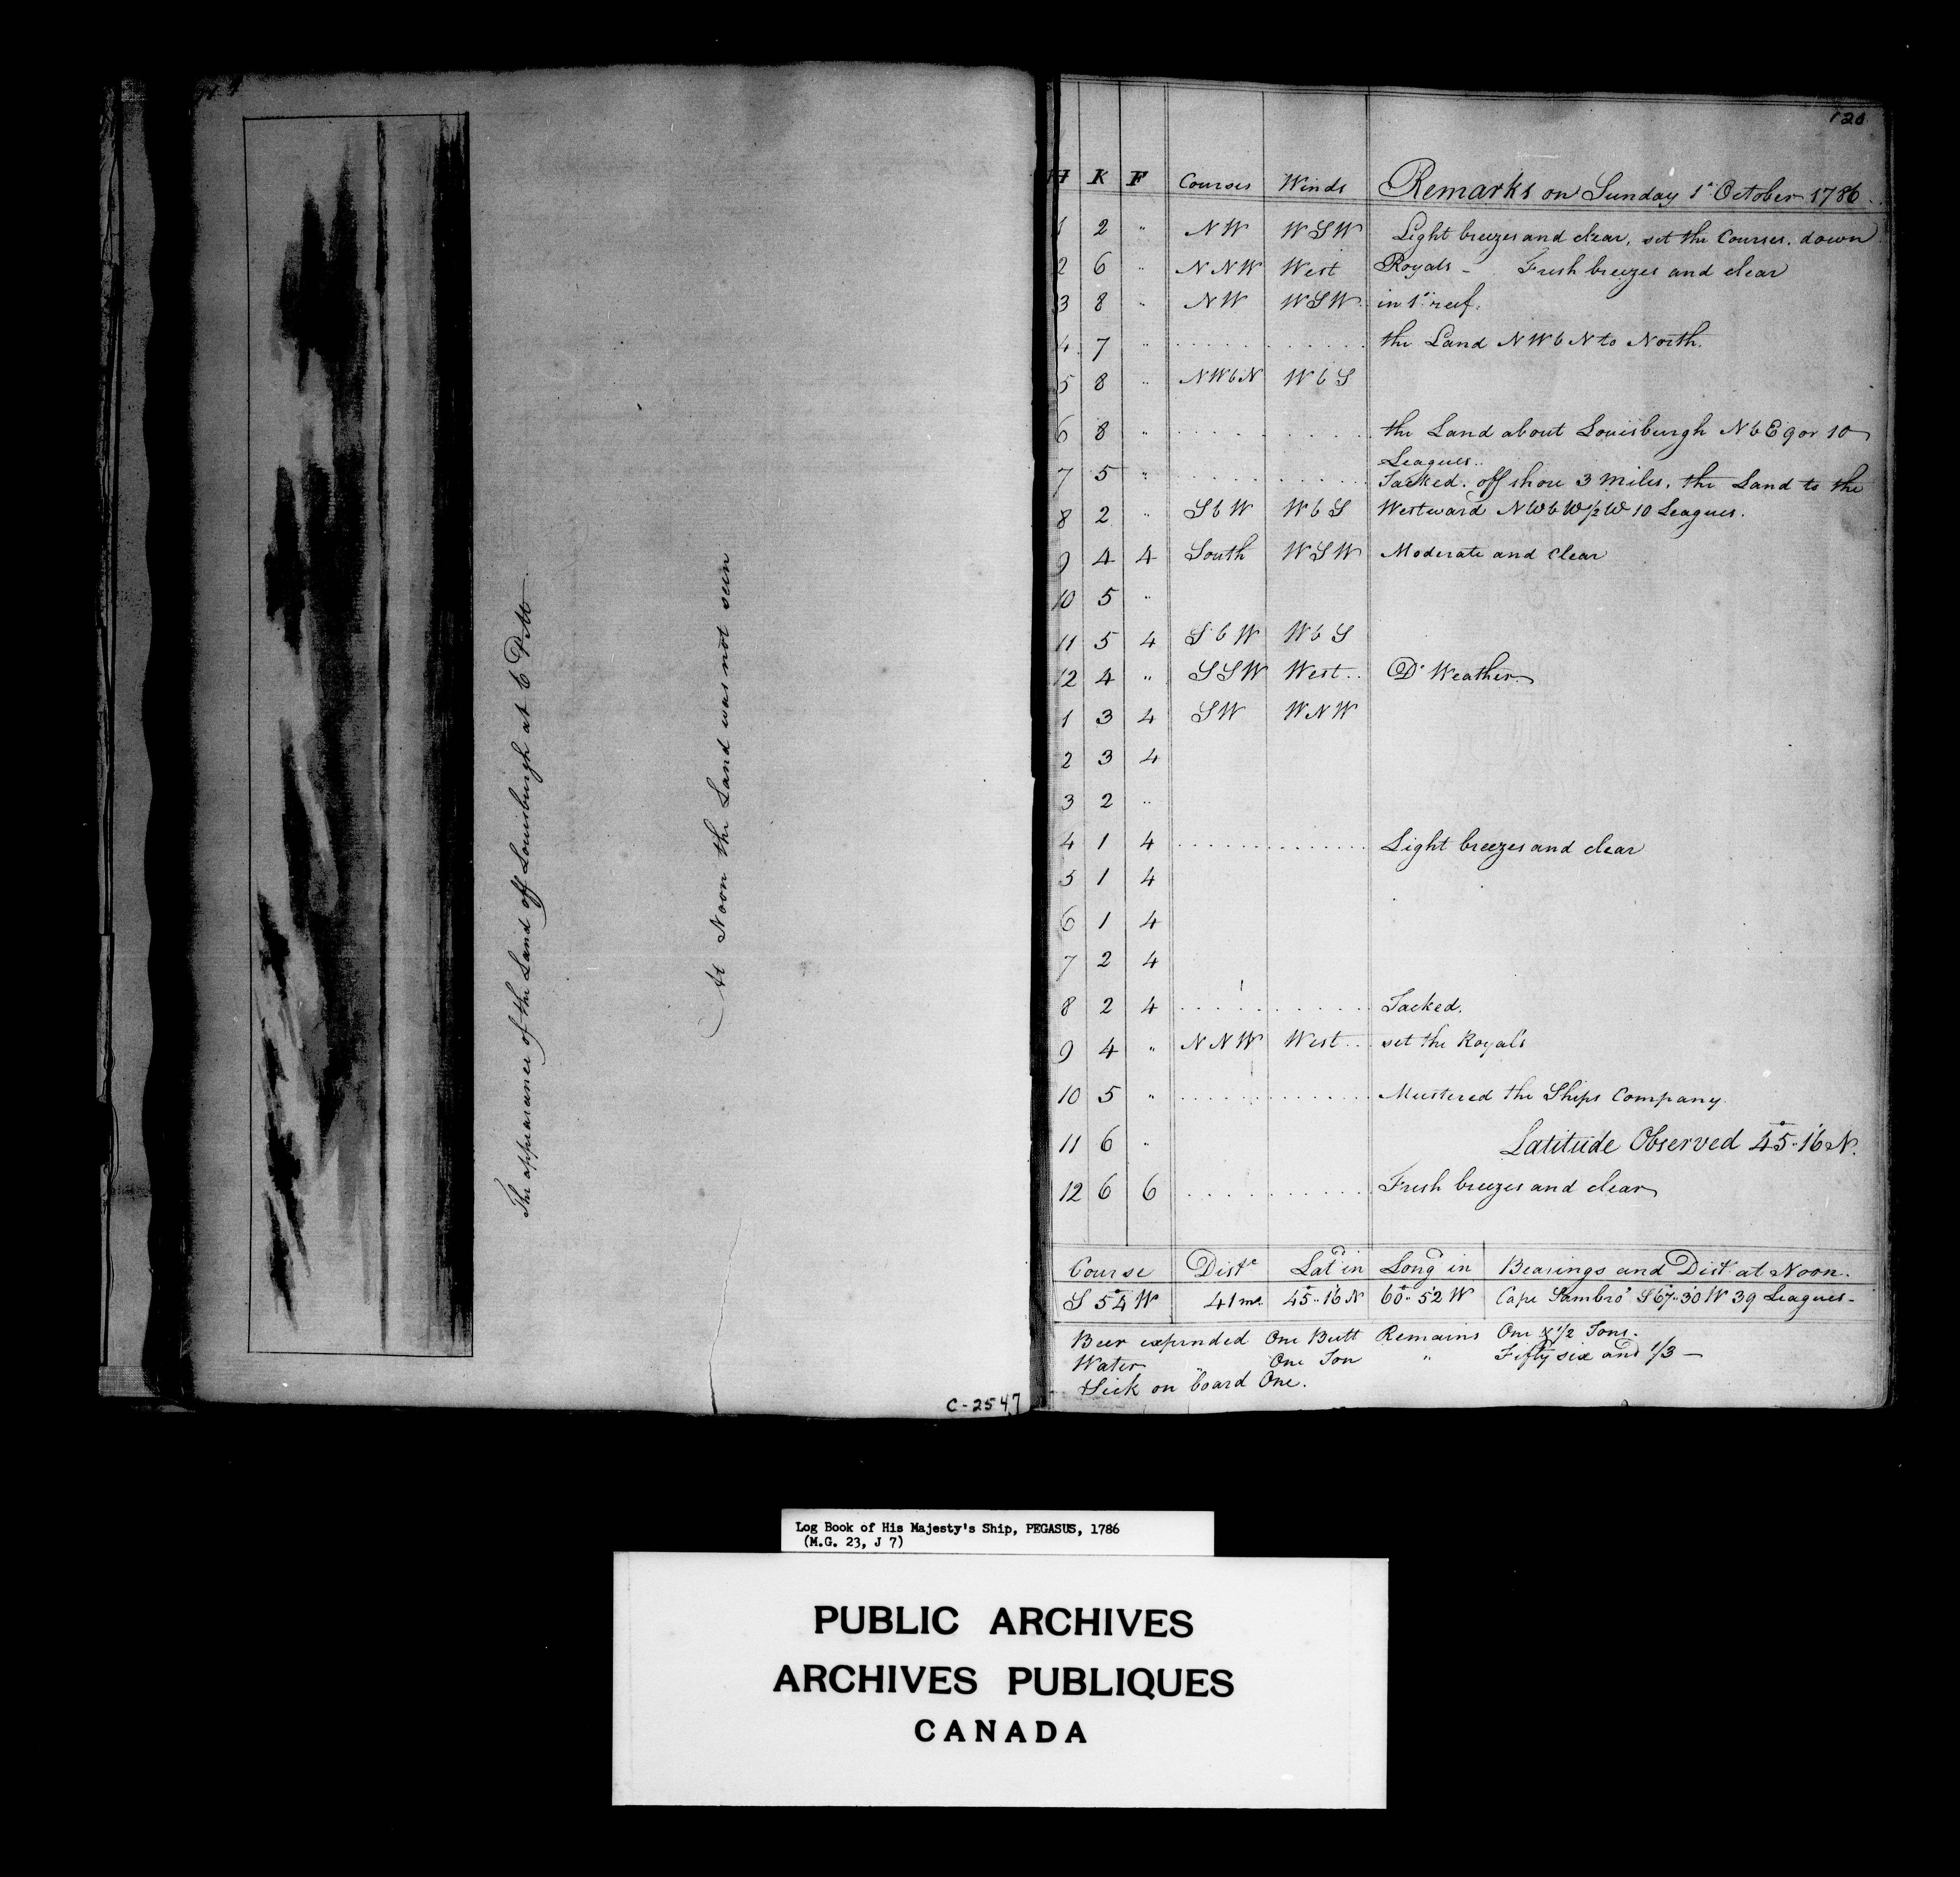 The appearance of the Land off Louisburgh at 6 PM
At Noon the Land was not seen
C-2547
120
H K F Courses Winds Remarks on Sunday 1st October 1786
1 2 " NW WSW Light breezes and clear, set the Courses. down
2 6 " NNW West Royals - Fresh breezes and clear
3 8 " NW WSW in 1st reef.
4 7 " . . . . . . the Land NWbN to North.
5 8 " NWbN WbS
6 8 " . . . . . . the Land about Louisburgh NbE 9 or 10
Leagues..
7 5 " . . . . . . Tacked. off shore 3 Miles. the Land to the
8 2 " SbW WbS Westward NWbW½W 10 Leagues.
9 4 4 South WSW Moderate and Clear
10 5 "
11 5 4 SbW WbS
12 4 " SSW West.. Do Weather
1 3 4 SW WNW
2 3 4
3 2 "
4 1 4 . . . . . . Light breezes and clear
5 1 4
6 1 4
7 2 4
8 2 4 . . . . . . Tacked.
9 4 " NNW West.. set the Royals
10 5 " . . . . . . Mustered the Ships Company
11 6 " Latitude Observed 45°..16'N.
12 6 6 . . . . . . Fresh breezes and clear
Course Diste Latd in Longd in Bearings and Dist. at Noon.
S 54° W 41 ms. 45°..16'N 60°..52'W Cape Sambro' S67°..30'W 39 Leagues-
Beer expended One Butt Remains One & 1/2 Tons.
Water One Ton " Fifty six and 1/3 —
Sick on board One.
Log Book of His Majesty's Ship, PEGASUS, 1786
(M.G. 23, J 7)
PUBLIC ARCHIVES
ARCHIVES PUBLIQUES
CANADA